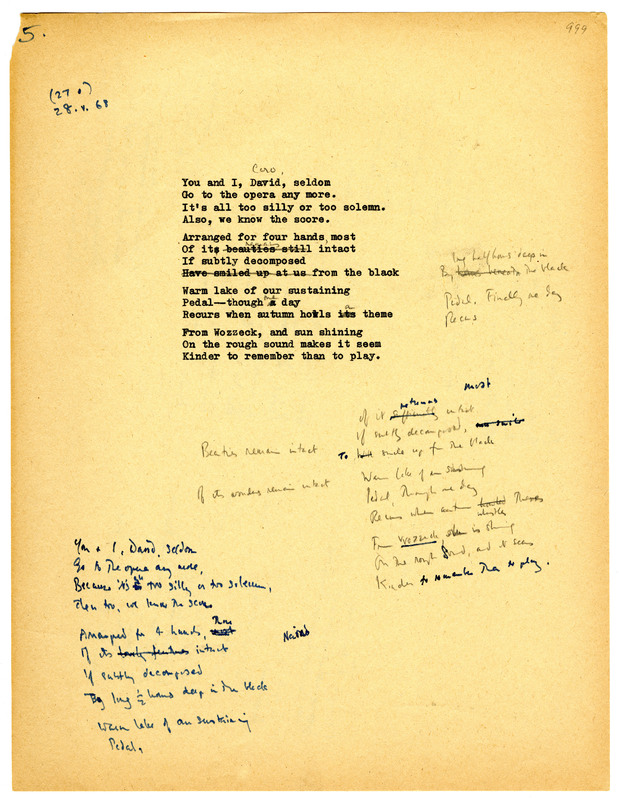 5.
994
(27 )
28.v.68
Ciro,
You and I, David, seldom
Go to the opera any more.
It's all too silly or too solemn.
Also, we know the score.
Arranged for four hands, most
Of its beauties still intact
If subtly decomposed
Have smiled up at us from the black
Warm lake of our sustaining
one
Pedal—though a day
Recurs when autumn howls its theme
From Wozzeck, and sun shining
On the rough sound makes it seem
Kinder to remember than to play.
long half hours deep in
By the black
Pedal. Finally one day
Recurs
most
Of it intact
If subtly decomposed,
To smile up from the black
Warm lake of our
Pedal. Though one day
Recurs when autumn
From Wozzeck, is shining
On the rough sound, and it seems
Kinder to remember than to play.
Beauties remain intact
If its wonders remain intact
You & I, David, seldom
Go to the opera any more,
Because it's too silly or too solemn,
Then too, we know the score
Arranged for 4 hands,
If its lovely features intact
If subtly decomposed
By long ½ hours deep in the black
Warm lake of our sustaining
Pedal,